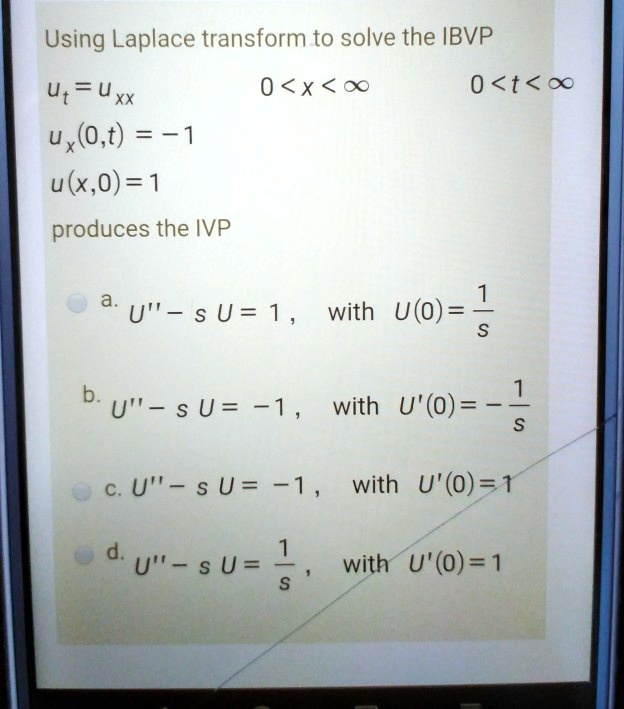 Using Laplace transform to solve the IBVP
u_t = u_xx 0 < x < ∞ 0 < t < ∞
u_x(0,t) = −1
u(x,0) = 1
produces the IVP
a. U'' − s U = 1 , with U(0) = 1/s
b. U'' − s U = −1 , with U'(0) = − 1/s
c. U'' − s U = −1 , with U'(0) = 1
d. U'' − s U = 1/s , with U'(0) = 1